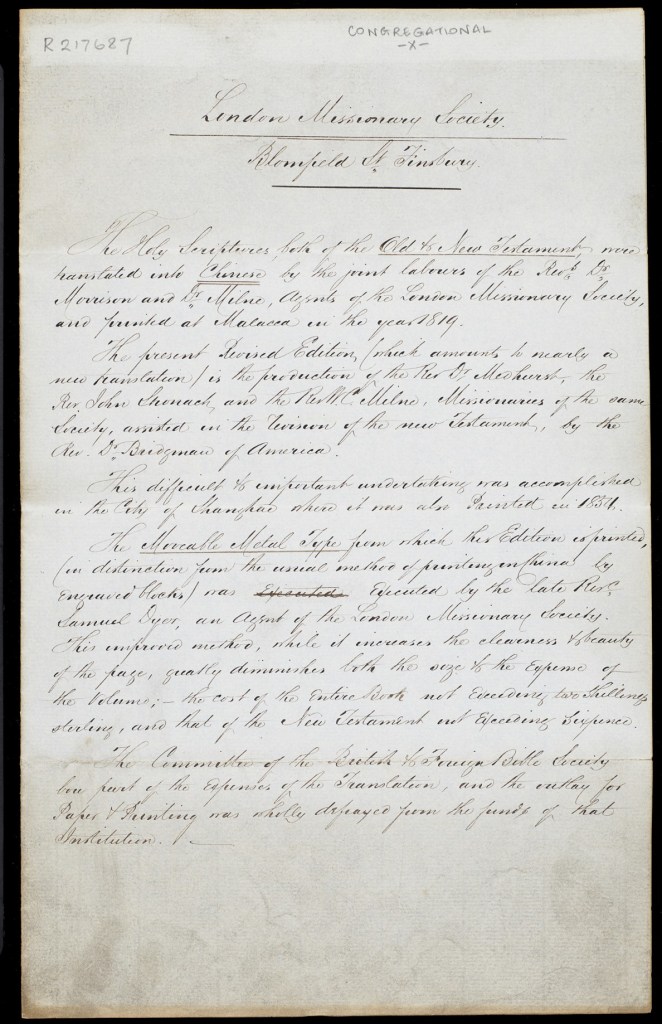 R 217687
CONGREGATIONAL
-x-
London Missionary Society.
Blomfield St. Finsbury.
The Holy Scriptures, both of the Old & New Testament, were
translated into Chinese by the joint labours of the Revd. Dr.
Morrison and Dr. Milne, Agents of the London Missionary Society,
and printed at Malacca in the year 1819.
The present Revised Edition, (which amounts to nearly a
new translation) is the production of the Rev. Dr. Medhurst, the
Rev. John Stronach, and the Rev. W. C. Milne, Missionaries of the same
Society, assisted in the Revision of the new Testament, by the
Rev. Dr. Bridgman of America.
This difficult & important undertaking was accomplished
in the City of Shanghae where it was also Printed in 1854.
The Moveable Metal Type from which this Edition is printed,
(in distinction from the usual method of printing in China by
Engraved blocks) was Executed Executed by the late Revd.
Samuel Dyer, an Agent of the London Missionary Society.
This improved method, while it increases the clearness & beauty
of the page, greatly diminishes both the size & the Expense of
the Volume; – the cost of the Entire Book not Exceeding two Shillings
sterling, and that of the New Testament not Exceeding Sixpence.
The Committee of the British & Foreign Bible Society
bore part of the Expenses of the Translation, and the outlay for
Paper & Printing was wholly defrayed from the funds of that
Institution. –